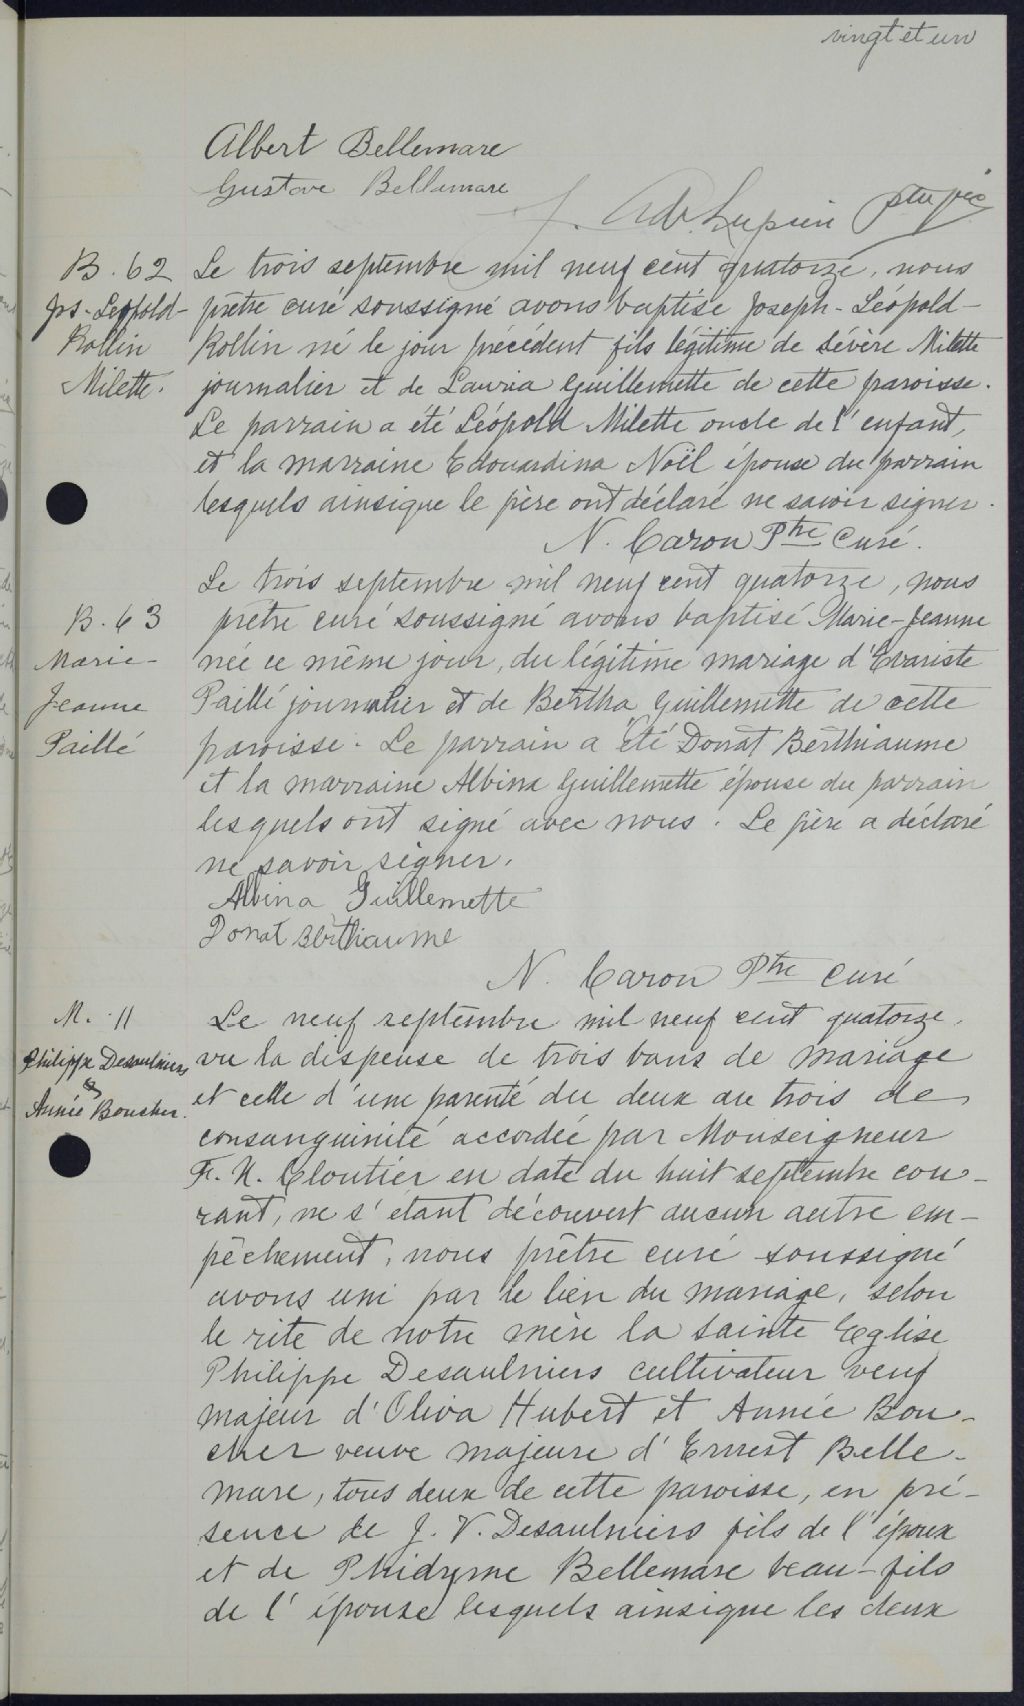 vingt et un
Albert Bellemare
Gustave Bellemare
J. Ad. Lupien ptre vic
B. 62
Jos-Leopold-
Rollin
Milette.
Le trois septembre mil neuf cent quatorze, nous
prêtre curé soussigné avons baptisé Joseph-Léopold-
Rollin né le jour précédent fils légitime de Sévère Milette
journalier et de Lauria Guillemette de cette paroisse.
Le parrain a été Léopold Milette oncle de l'enfant,
et la marraine Edouardina Noël épouse du parrain
lesquels ainsique le père ont déclaré ne savoir signer.
N. Caron Ptre Curé.
B. 63
Marie-
Jeanne
Paillé
Le trois septembre mil neuf cent quatorze, nous
prêtre curé soussigné avons baptisé Marie-Jeanne
née ce même jour, du légitime mariage d'Evariste
Paillé journalier et de Bertha Guillemette de cette
paroisse. Le parrain a été Donat Berthiaume
et la marraine Albina Guillemette épouse du parrain
lesquels ont signé avec nous. Le père a déclaré
ne savoir signer.
Albina Guillemette
Donat Berthiaume
N. Caron Ptre Curé
M. 11
Philippe Desaulniers
&
Annie Boucher.
Le neuf septembre mil neuf cent quatorze,
vu la dispense de trois bans de mariage
et celle d'une parenté du deux au trois de
consanguinité accordée par Monseigneur
F. X. Cloutier en date du huit septembre cou-
rant, ne s'étant découvert aucun autre em-
pêchement, nous prêtre curé soussigné
avons uni par le lien du mariage, selon
le rite de notre mère la sainte Eglise
Philippe Desaulniers cultivateur veuf
majeur d'Oliva Hubert et Annie Bou-
cher veuve majeure d'Ernest Belle-
mare, tous deux de cette paroisse, en pré-
sence de J. V. Desaulniers fils de l'époux
et de Phidyme Bellemare beau-fils
de l'épouse lesquels ainsique les deux